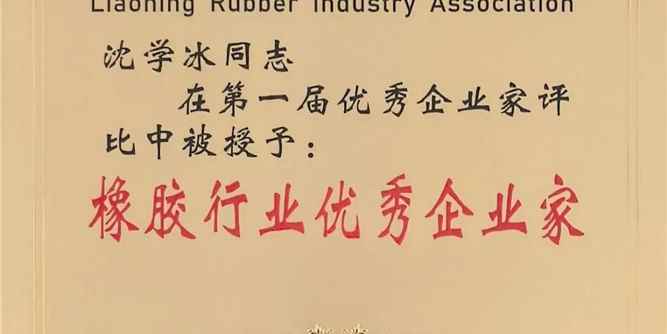 Liaoning Rubber Industry Association
沈学冰同志
在第一届优秀企业家评
比中被授予：
橡胶行业优秀企业家